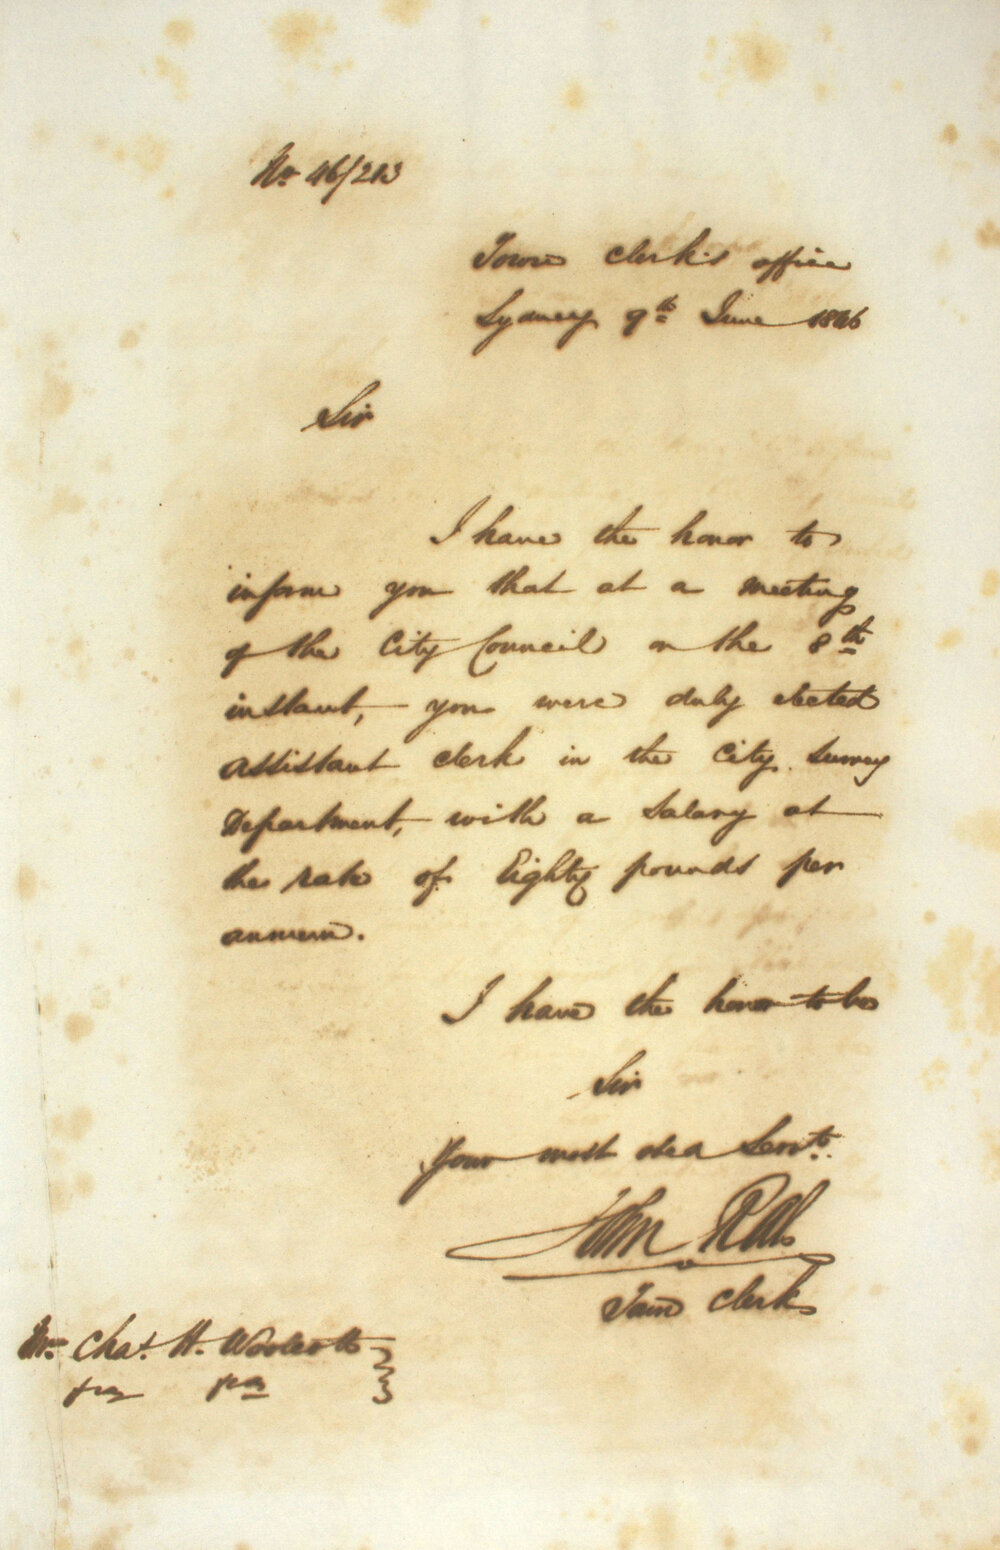 No. 46/213
Town Clerk's office
Sydney 9th June 1846
Sir
I have the honor to
inform you that at a meeting
of the City Council on the 8th
instant, you were duly elected
assistant clerk in the City Survey
Department, with a Salary at
the rate of Eighty pounds per
annum.
I have the honor to be
Sir
Your most obed Servt.
John
Town Clerk
Mr. Chas. H. Woolcott